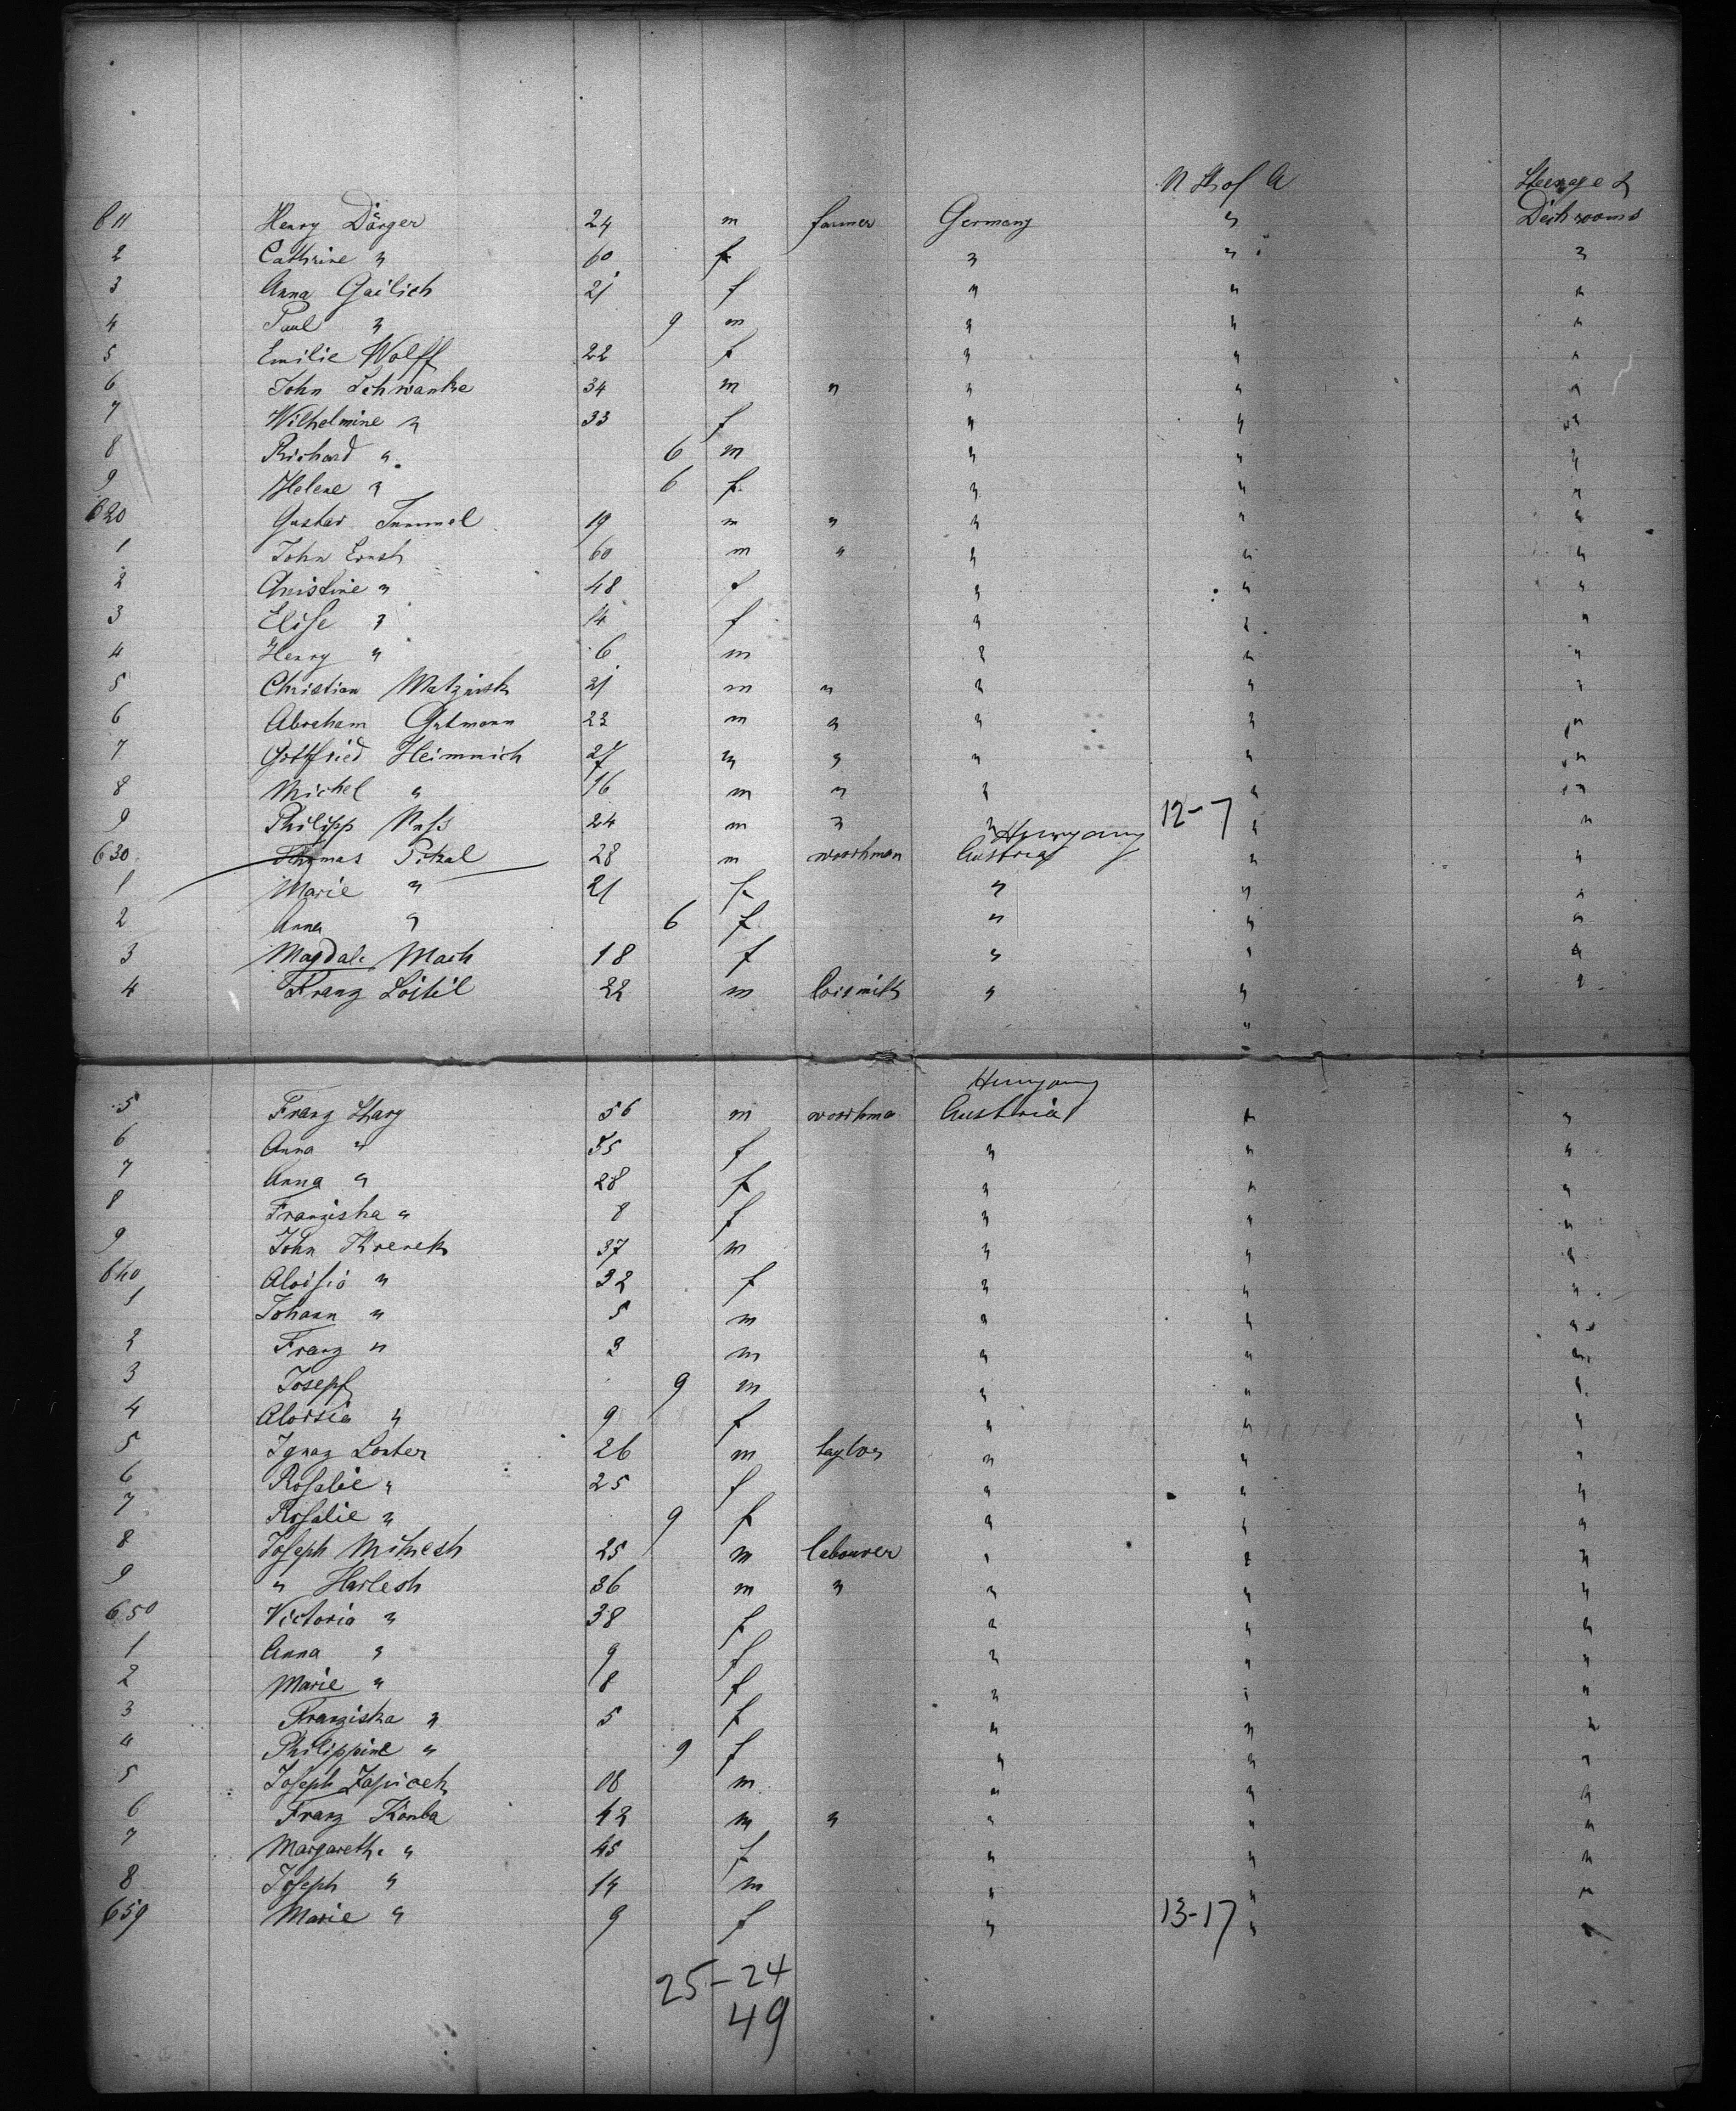 N St of A Steerage &
611 Henry Dörger 24 m farmer Germany " Deck rooms
2 Cathrine " 60 f " " "
3 Anna Gailich 21 f " " "
4 Paul " 9 m " " "
5 Emilie Wolff 22 f " " "
6 John Schwanke 34 m " " " "
7 Wilhelmine " 33 f " " "
8 Richard " 6 m " " "
9 Helene " 6 f " " "
620 Gustav Tummel 19 m " " " "
1 John Ernst 60 m " " " "
2 Christine " 48 f " " "
3 Elise " 14 f " " "
4 Henry " 6 m " " "
5 Christian 21 m " " " "
6 Abraham Gutmann 23 m " " " "
7 Gottfried Heimnich 27 m " " " "
8 Michel " 16 m " " " "
9 Philipp Nuss 24 m " " 12-7 " "
Hungary
630 Thomas Pikal 28 m workman Austria " "
1 Marie " 21 f " " "
2 Anna " 6 f " " "
3 Magdal. Mach 18 f " " "
4 Franz 22 m " " "
"
Hungary
5 Franz 56 m workma Austria " "
6 Anna " 55 f " " "
7 Anna " 28 f " " "
8 Franziska " 8 f " " "
9 John 37 m " " "
640 Aloisia " 32 f " " "
1 Johann " 5 m " " "
2 Franz " 3 m " " "
3 Josepf 9 m " " "
4 Aloisia " 9 f " " "
5 Ignaz 26 m taylor " " "
6 Rosalie " 25 f " " "
7 Rosalie " 9 f " " "
8 Joseph Mikesh 25 m labourer " " "
9 " Harlesh 36 m " " " "
650 Victoria " 38 f " " "
1 Anna " 9 f " " "
2 Marie " 8 f " " "
3 Franziska " 5 f " " "
4 Philippine " 9 f " " "
5 Joseph 18 m " " "
6 Franz Kanba 42 m " " " "
7 Margareth. " 45 f " " "
8 Joseph " 14 m " " "
659 Marie " 9 f " 13-17 " "
25-24
49